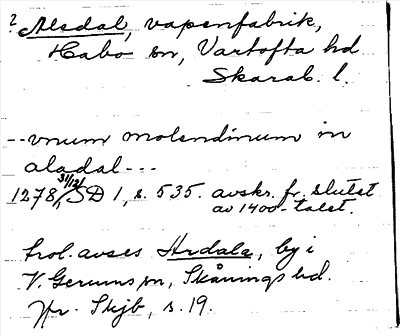 ? Alsdal, vapenfabrik,
Habo sn, Vartofta hd
Skarab. l.
--vnum molendinum in
aladal---
1278 31/12, SD 1, s. 535. avskr. fr. slutet
av 1400-talet.
trol. avses Ardala, by i
V. Gerums sn, Skånings hd.
Jfr. Skjb, s. 19.